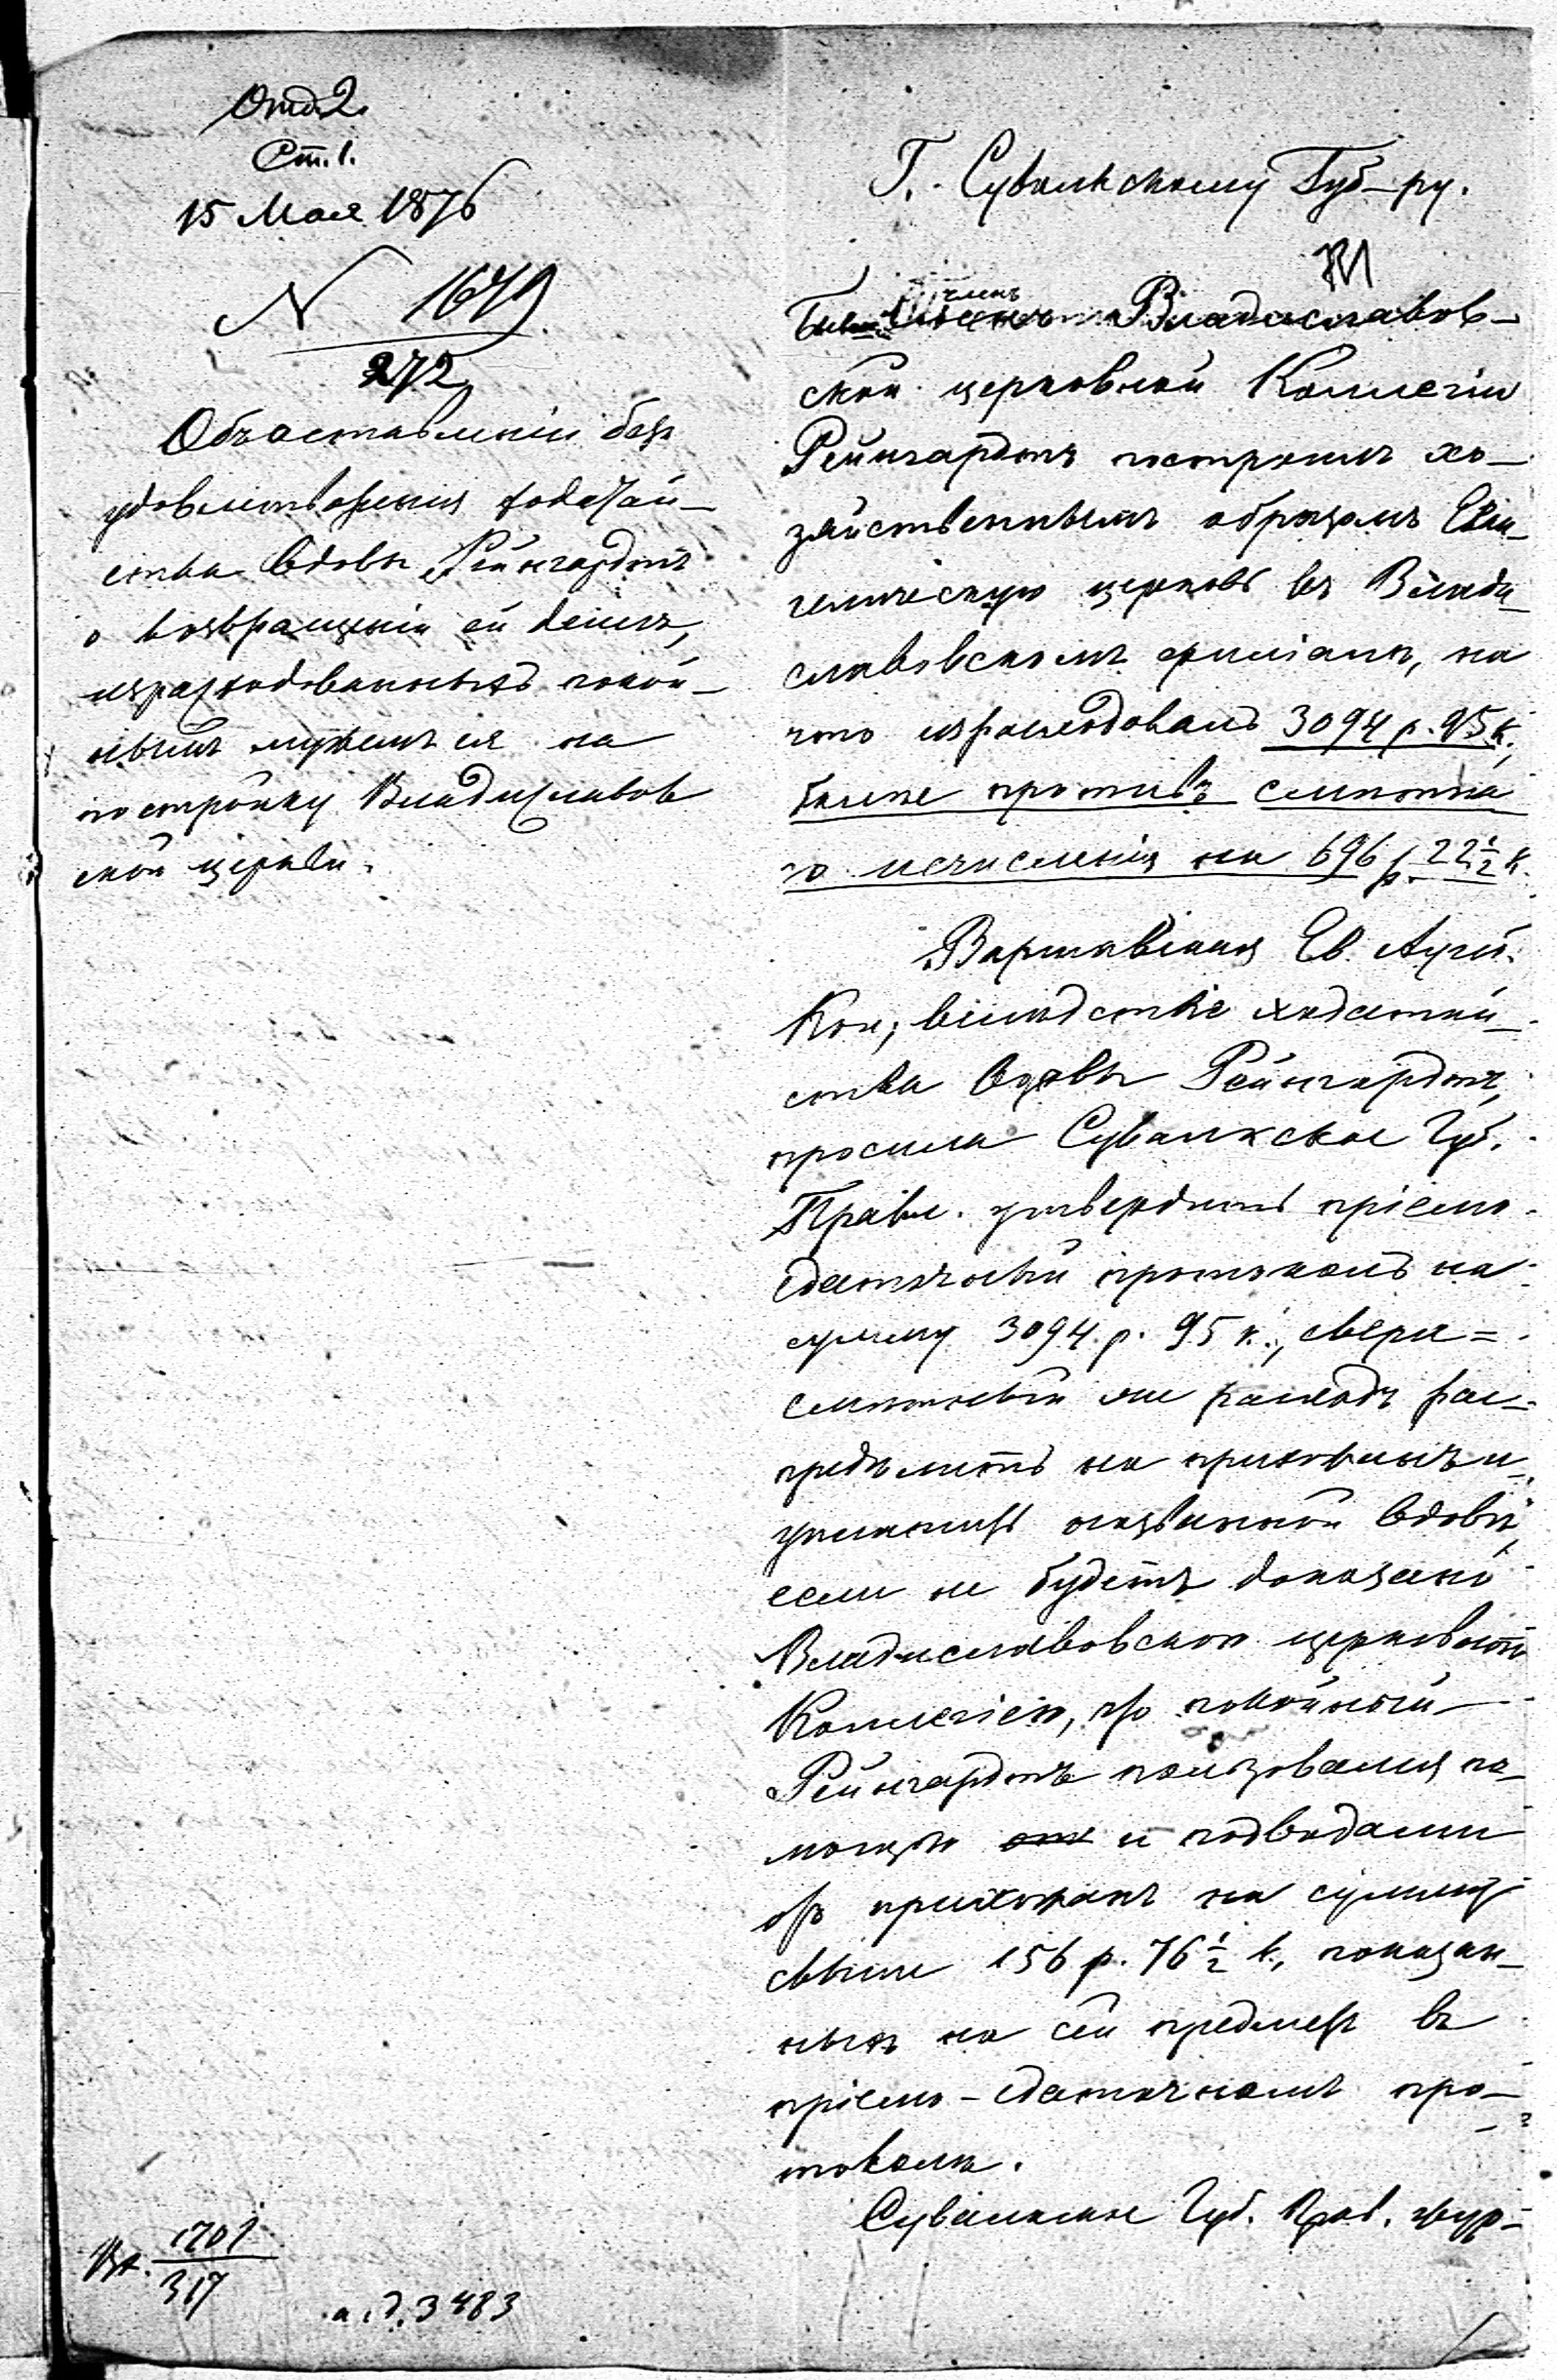 Отд. 2.
Ст. 1.
15 Мая 1876
N 1679
272
Объ оставленіи безъ
удовлетворенія ходатай-
ства вдовы Рейнгардтъ
о возвращеніи ей денегъ,
израсходованныхъ покой-
нымъ мужемъ ея на
постройку Владиславов
ской церкви.
Г. Сувалкскому Губ-ру.
членъ
Бывш. Владиславов-
ской церковной Коллегіи
Рейнгардтъ построилъ хо-
зяйственнымъ образомъ Еван
гелическую церковь въ Влади-
славовскомъ филіалѣ, на
что израсходовалъ 3094 р. 95 к.,
болѣе противъ смѣтна
го исчисленія на 696 р. 22 1/2 к.
Варшавская Ев. Аугсб.
Кон., вслѣдствіе ходатай-
ства вдовы Рейнгардтъ,
просила Сувалкское Губ.
Правл. утвердить пріемо-
сдаточный протоколъ на
сумму 3094 р. 95 к., сверх=
смѣтный же расходъ рас-
предѣлить на прихожанъ и
уплатить названной вдовѣ,
если не будетъ доказано
Владиславовскою церковною
Коллегіею, что покойный
Рейнгардтъ пользовался по-
мощью и подводами
отъ прихожанъ на сумму
свыше 156 р. 76 1/2 к., показан-
ныхъ на сей предметъ въ
пріемо-сдаточномъ про-
токолѣ.
Сувалкское Губ. Прав. жур-
Вх. 1701
317
а. д. 3483